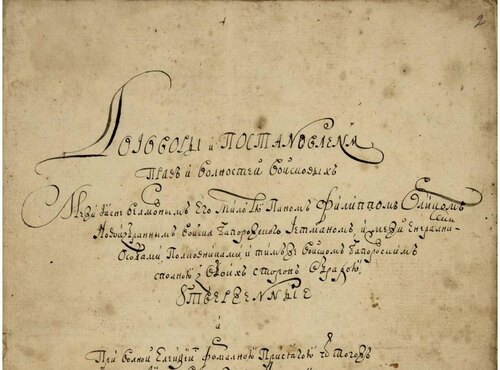 2
Договоры и Постановленя
Правъ и волностей войсковыхъ
Межи Ясне велможнымъ Его Милостю Паномъ Филиппомъ Орликомъ
Новоизбраннымъ войска Запорожского Гетманомъ, и межи Енералними
Особами Полковниками и тимъ же войскомъ Запорожскимъ
сполною з обоихъ сторонъ обрадою
Утвержонные
и
При волной Елекции формалною Присягою